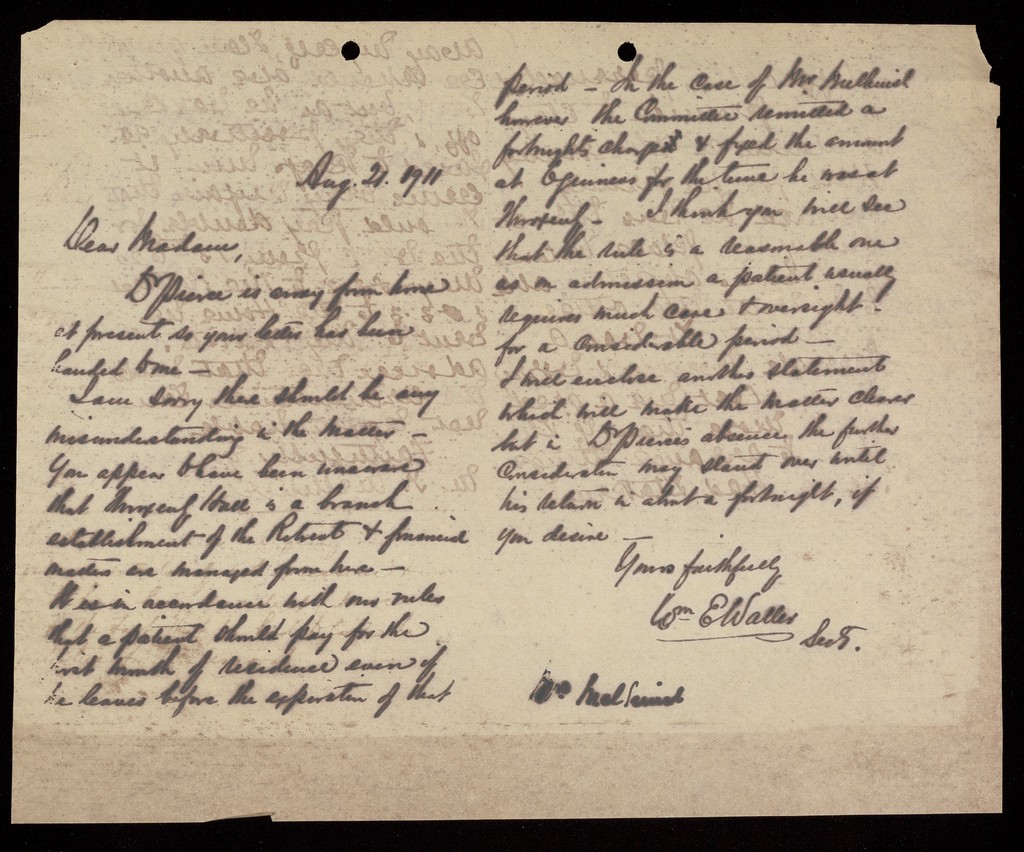 Aug. 21. 1911
Dear Madam,
Dr Pierce is away from home
at present so your letter has been
handed to me —
I am sorry there should be any
misunderstanding in the matter —
You appear to have been unaware
that Throxenby Hall is a branch
establishment of the Retreat & financial
matters are managed from here —
It is in accordance with our rules
that a patient should pay for the
first month of residence even if
he leaves before the expiration of that
period — In the case of Mr
however the Committee remitted a
fortnight's charges & fixed the amount
at 6 guineas for the time he was at
Throxenby — I think you will see
that the rule is a reasonable one
as on admission a patient usually
requires much care & oversight
for a considerable period —
I will enclose another statement
which will make the matter clearer
but in Dr Pierce's absence the further
consideration may stand over until
his return in about a fortnight, if
you desire —
Yours faithfully
Wm E Waller
Secy.
Mrs